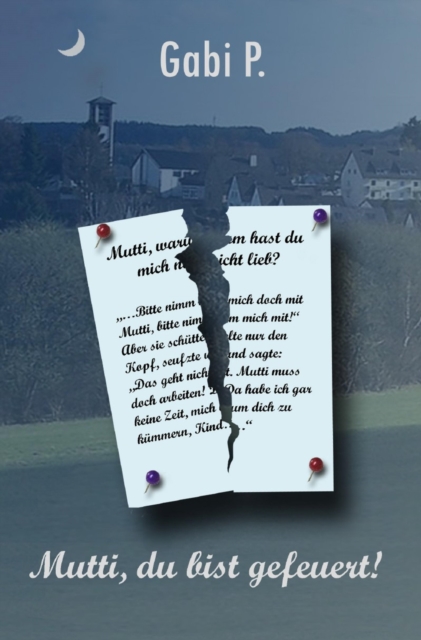 Gabi P.
Mutti, waru um hast du
mich n icht lieb?
„...Bitte nimm mich doch mit
Mutti, bitte nim m mich mit!“
Aber sie schütte lte nur den
Kopf, seufzte u und sagte:
„Das geht nich t. Mutti muss
doch arbeiten! Da habe ich gar
keine Zeit, mich um dich zu
kümmern, Kind....“
Mutti, du bist gefeuert!